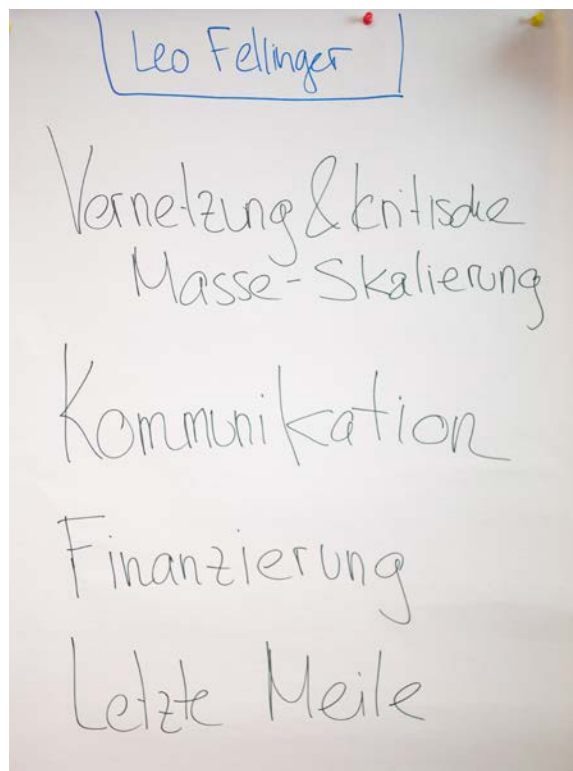 Leo Fellinger
Vernetzung & kritische
Masse-Skalierung
Kommunikation
Finanzierung
Letzte Meile